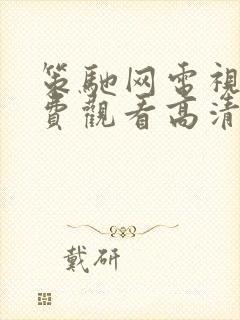 策馳网电視
費觀看高清
戴研